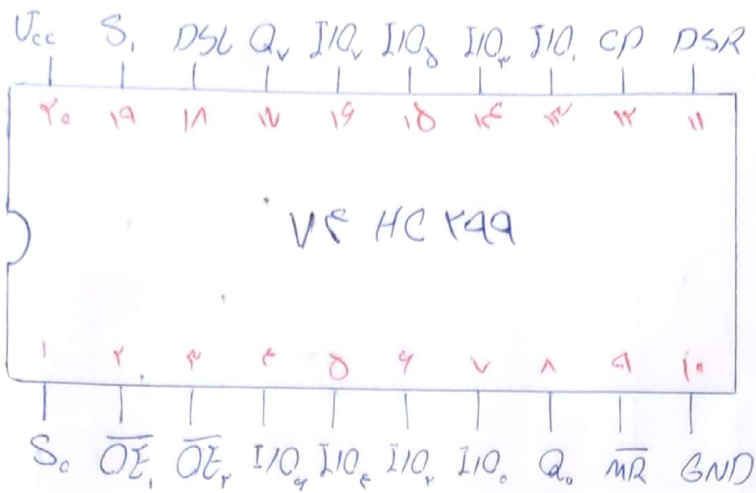 Vcc S₁ DSL Q۷ I/O۷ I/O۵ I/O۳ I/O۱ CP DSR
۲۰ ۱۹ ۱۸ ۱۷ ۱۶ ۱۵ ۱۴ ۱۳ ۱۲ ۱۱
۷۴ HC ۲۹۹
۱ ۲ ۳ ۴ ۵ ۶ ۷ ۸ ۹ ۱۰
S۰ O̅E̅۱ O̅E̅۲ I/O۶ I/O۴ I/O۲ I/O۰ Q۰ M̅R̅ GND